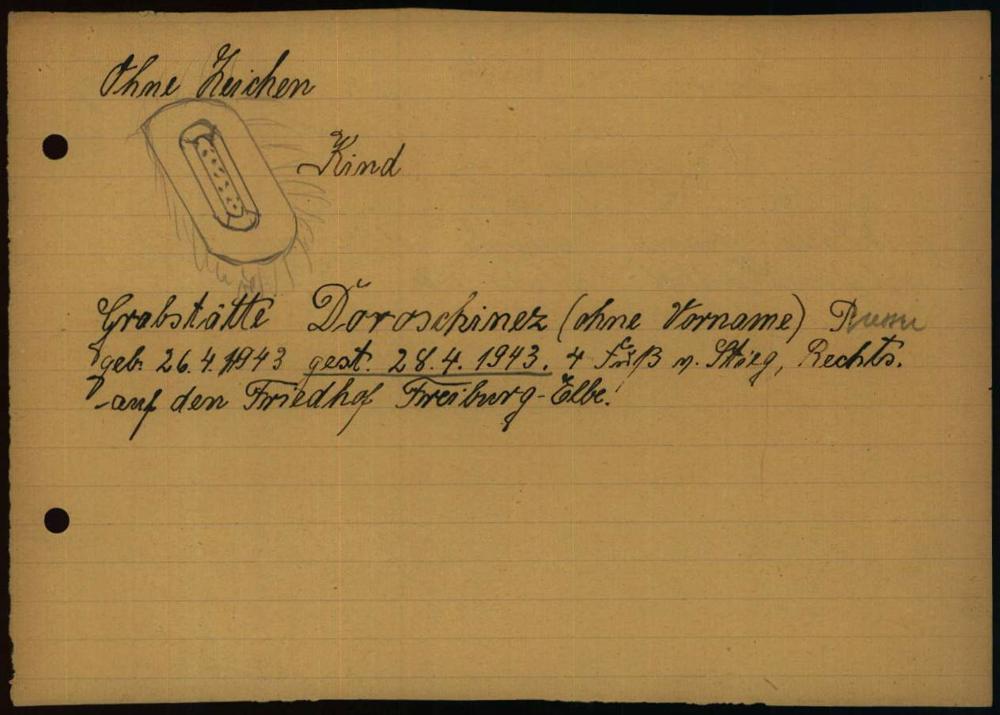 Ohne Zeichen
Kind
Grabstätte Doroschinez (ohne Vorname) Russe
geb. 26.4.1943 gest. 28.4.1943. 4 Fuß v. Stieg, Rechts.
auf den Friedhof Freiburg-Elbe.